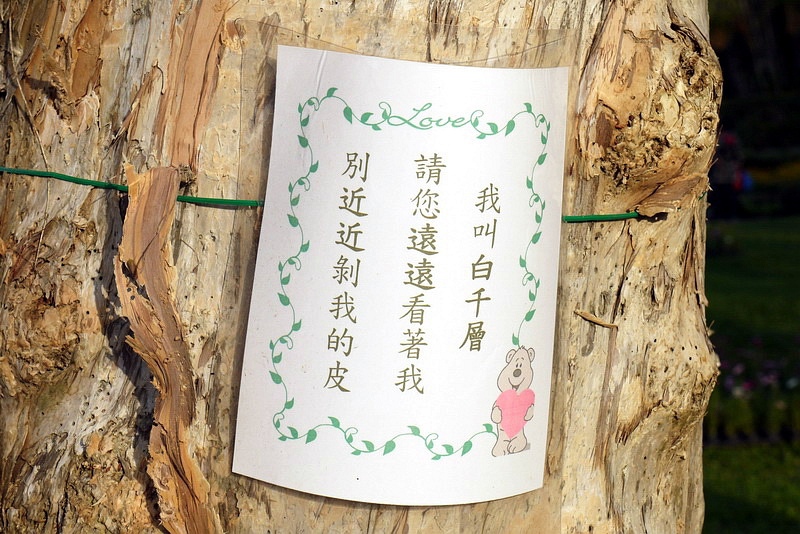 Love
我叫白千層
請您遠遠看著我
別近近剝我的皮